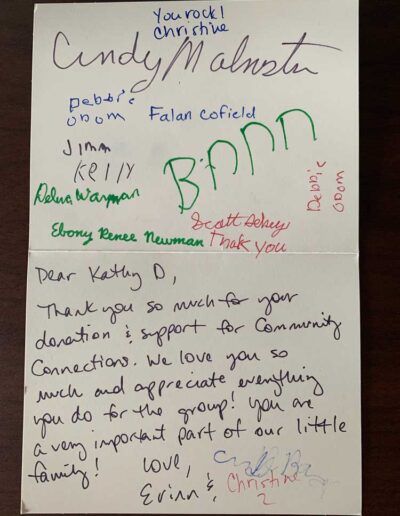 You rock!
Christine
Cindy Malnstr
Debbie
Odom
Falan Cofield
Jimm
Kelly
BANN
Debbie
Odom
Debra Wayman
Scott
Thank you
Ebony Renee Newman
Dear Kathy D,
Thank you so much for your
donation & support for Community
Connections. We love you so
much and appreciate everything
you do for the group! You are
a very important part of our little
family!
Love,
Erinn &
Christine
2